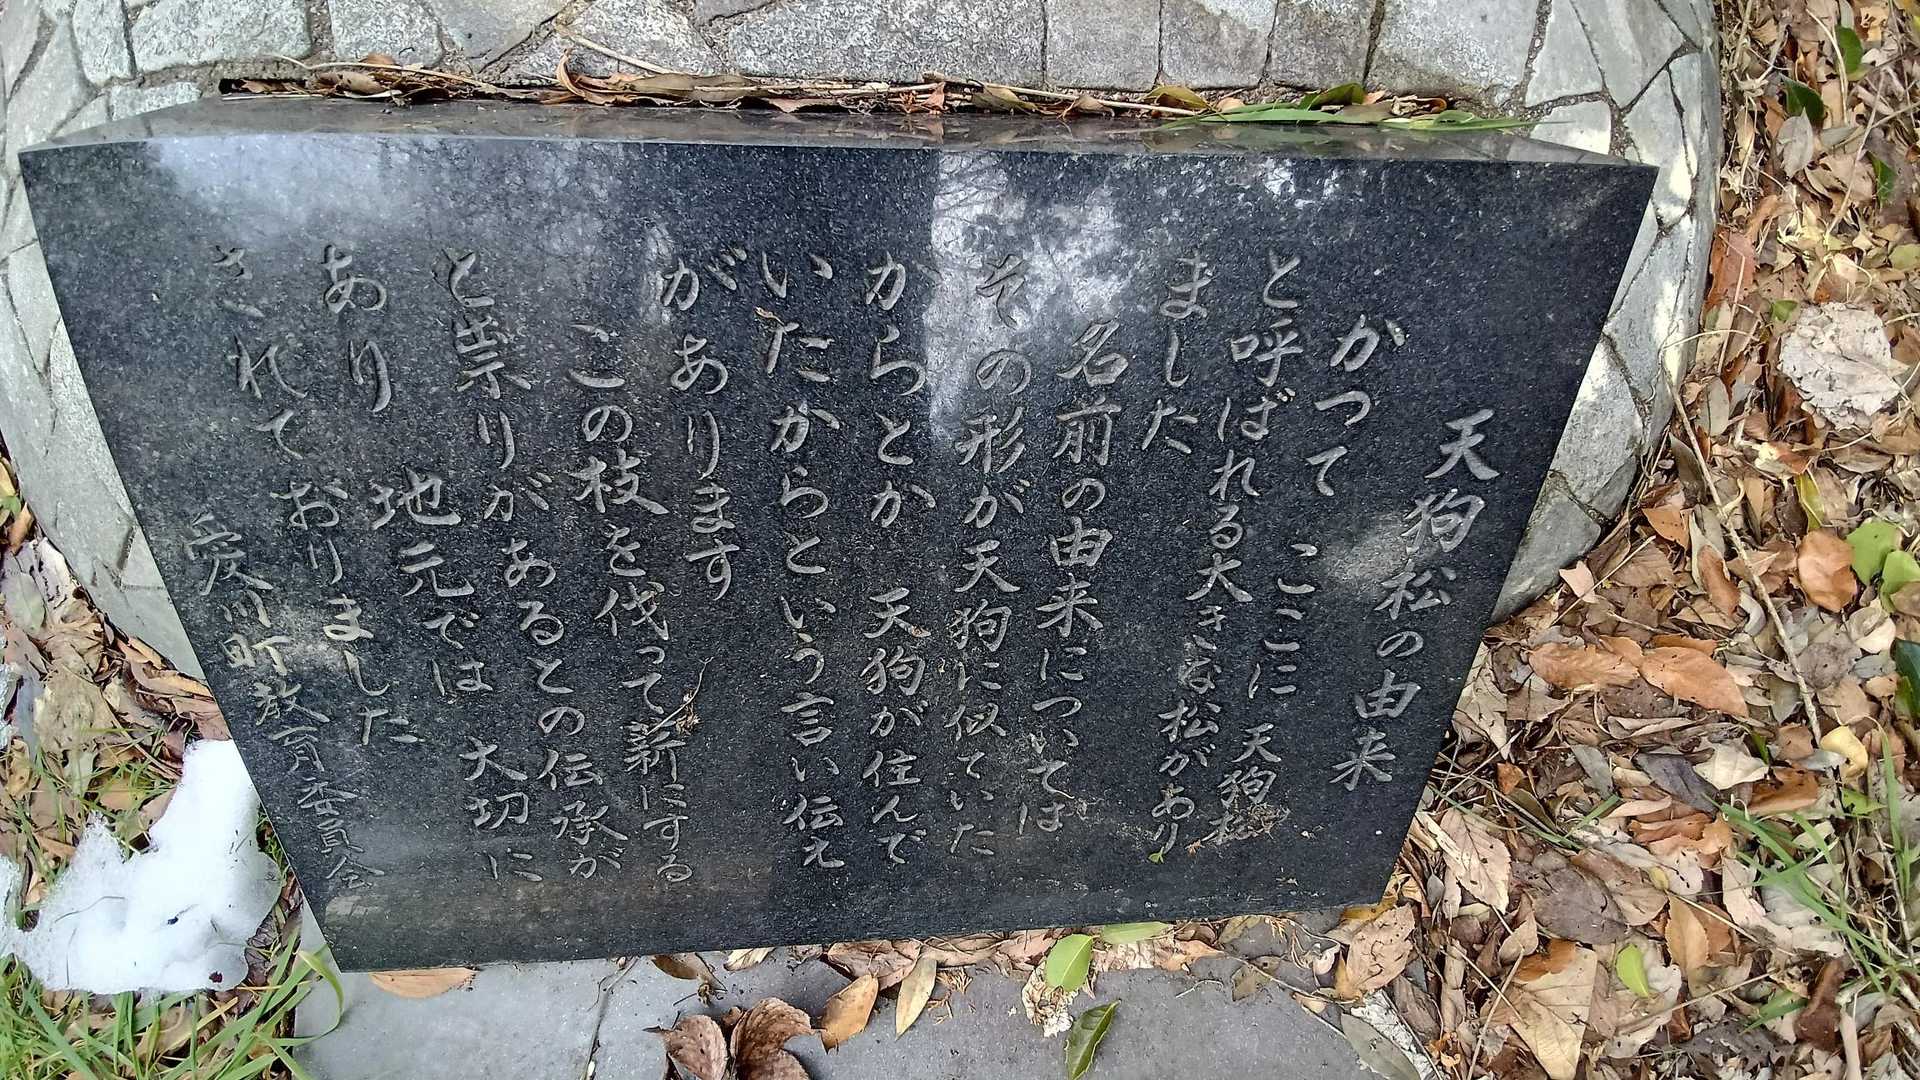 天狗松の由来
かつて ここに 天狗松
と呼ばれる大きな松があり
ました
名前の由来については
その形が天狗に似ていた
からとか 天狗が住んで
いたからという言い伝え
があります
この枝を伐って薪にする
と祟りがあるとの伝承が
あり 地元では 大切に
されておりました
愛川町教育委員会